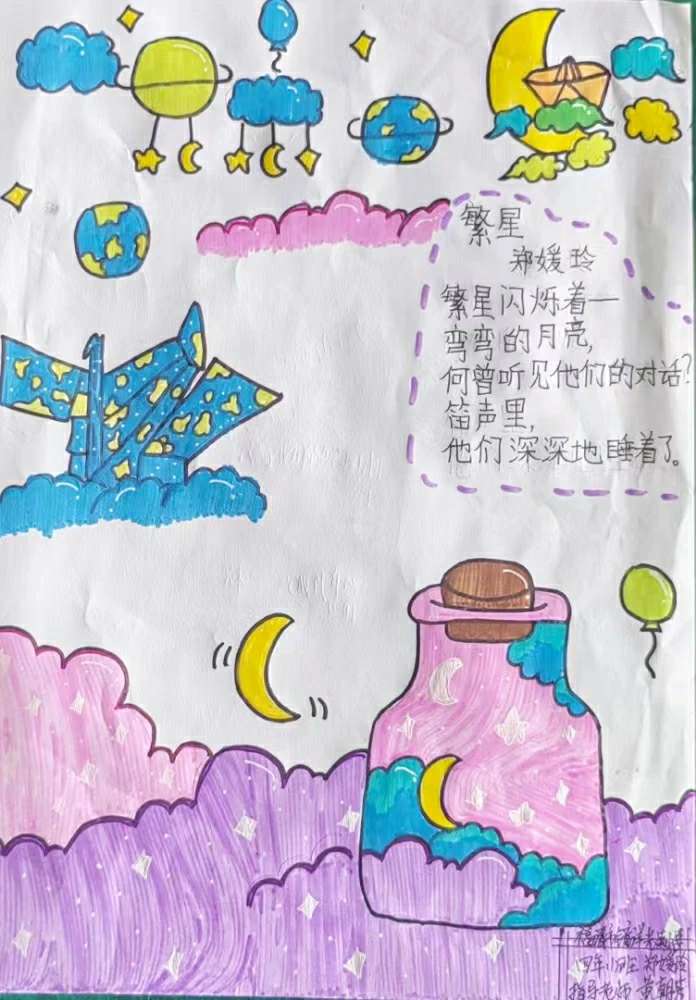 繁星
郑媛玲
繁星闪烁着一
弯弯的月亮,
何曾听见他们的对话?
笛声里,
他们深深地睡着了。
四年
指导老师 黄